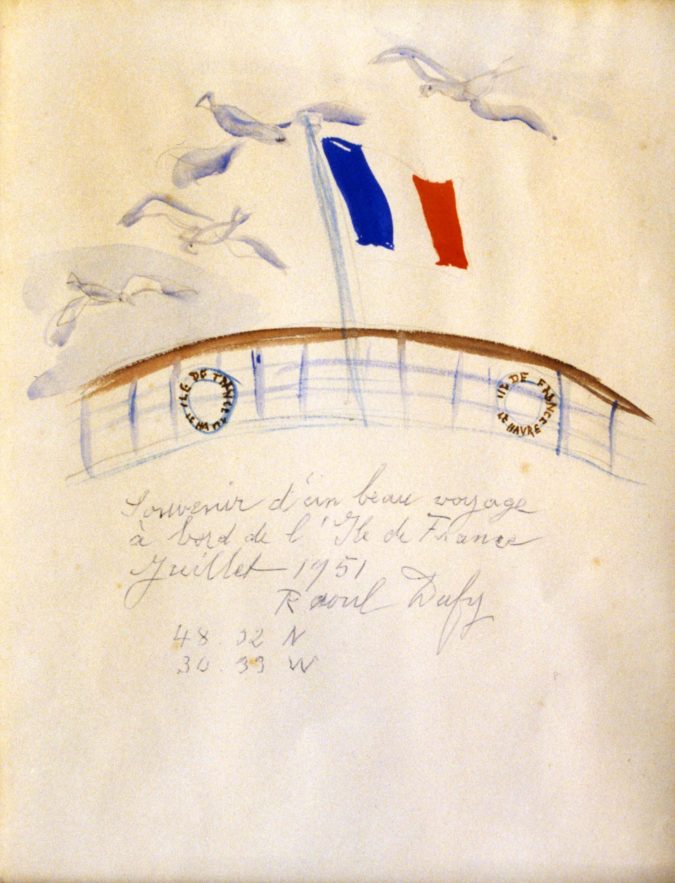 ILE DE FRANCE LE HAVRE
ILE DE FRANCE LE HAVRE
Souvenir d'un beau voyage
à bord de l'Ile de France
Juillet 1951
Raoul Dufy
48.02 N
30.33 W